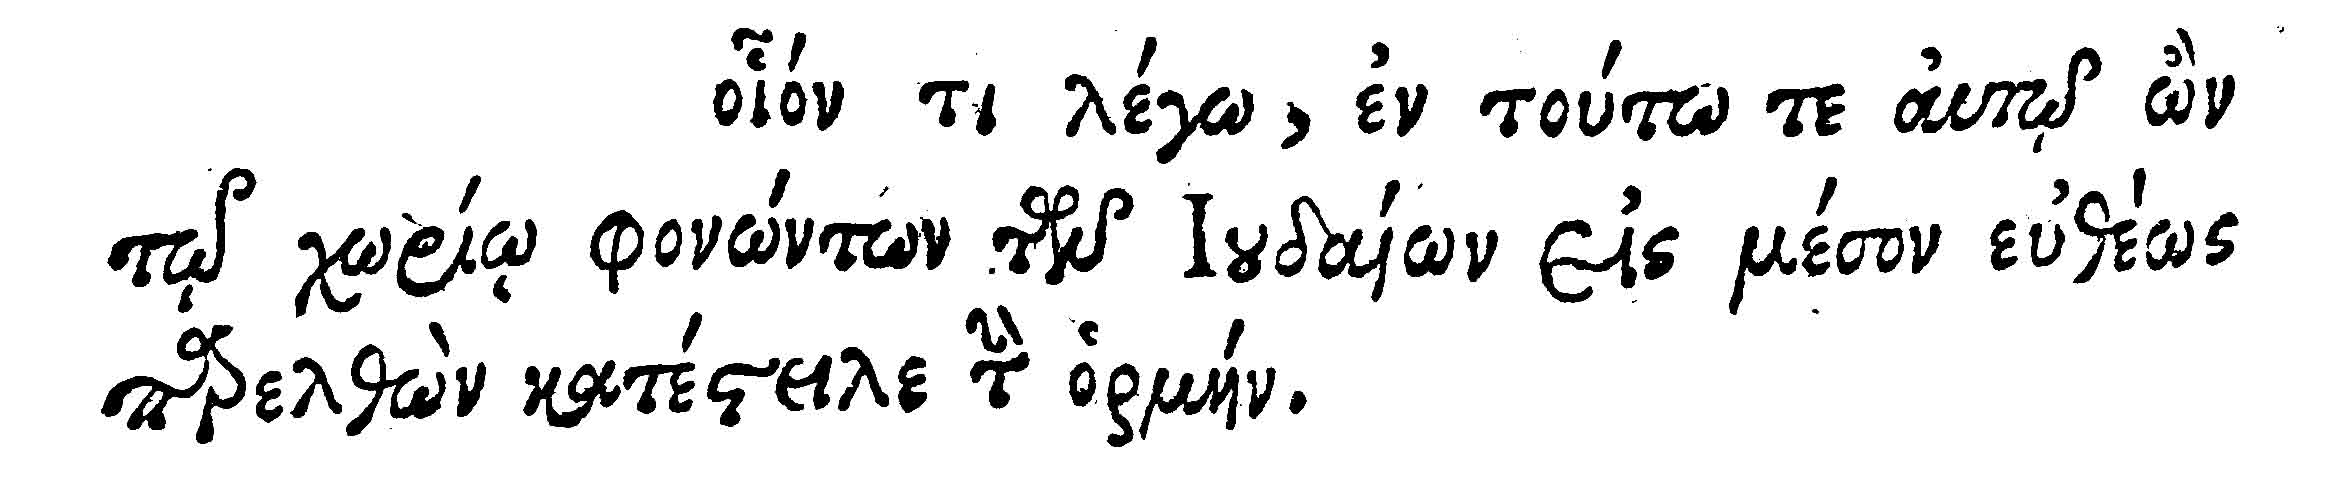 οἷόν τι λέγω, ἐν τούτω τε ἀυτῷ ὢν
τῷ χωρίῳ φονώντων τῶν Ιουδαίων εἰς μέσον εὐθέως
παρελθὼν κατέστειλε τὴν ὁρμήν.